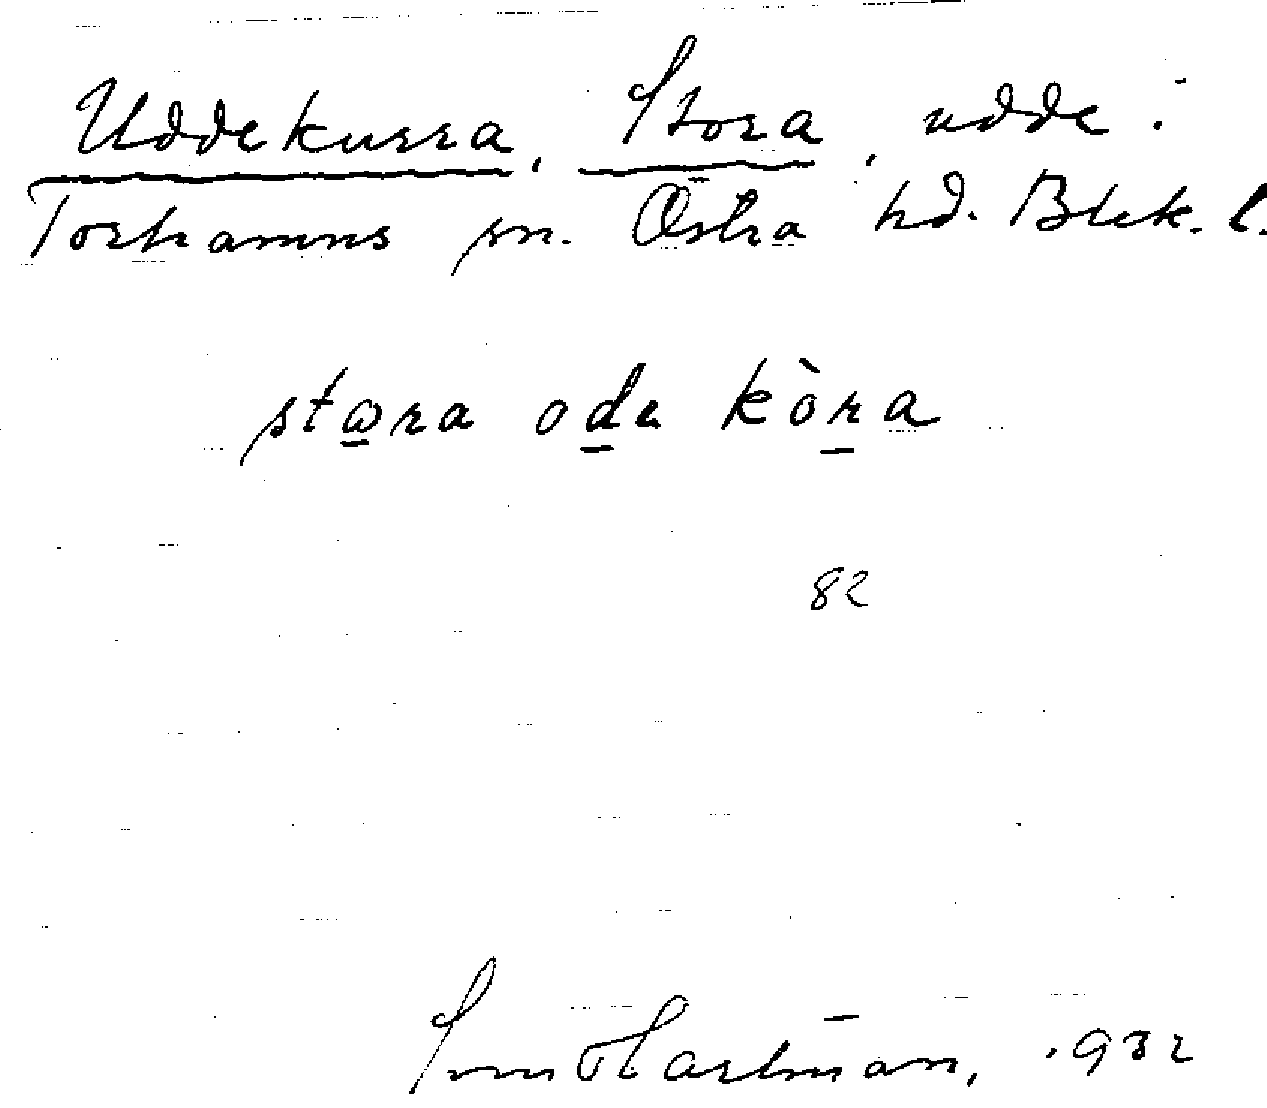 Uddekurra, Stora, udde i
Torhamns sn. Östra hd. Blek. l.
stωra odu kòra
82
Sven Hartman, 1932